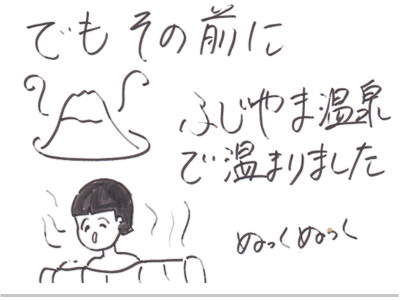 でもその前に
ふじやま温泉
で温まりました
ぬっくぬっく